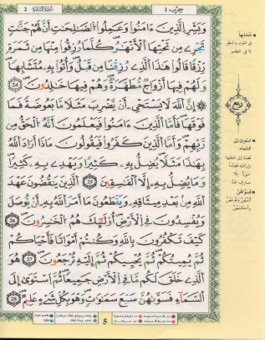 سورة البقرة 2
جزء 1
وَبَشِّرِ الَّذِينَ ءَامَنُوا وَعَمِلُوا الصَّٰلِحَٰتِ أَنَّ لَهُمْ جَنَّٰتٍ
تَجْرِى مِن تَحْتِهَا الْأَنْهَٰرُ كُلَّمَا رُزِقُوا مِنْهَا مِن ثَمَرَةٍ
رِّزْقًا قَالُوا هَٰذَا الَّذِى رُزِقْنَا مِن قَبْلُ وَأُتُوا بِهِ مُتَشَٰبِهًا
وَلَهُمْ فِيهَا أَزْوَٰجٌ مُّطَهَّرَةٌ وَهُمْ فِيهَا خَٰلِدُونَ ٢٥
إِنَّ اللَّهَ لَا يَسْتَحْىِ أَن يَضْرِبَ مَثَلًا مَّا بَعُوضَةً فَمَا
فَوْقَهَا فَأَمَّا الَّذِينَ ءَامَنُوا فَيَعْلَمُونَ أَنَّهُ الْحَقُّ مِن
رَّبِّهِمْ وَأَمَّا الَّذِينَ كَفَرُوا فَيَقُولُونَ مَاذَا أَرَادَ اللَّهُ
بِهَٰذَا مَثَلًا يُضِلُّ بِهِ كَثِيرًا وَيَهْدِى بِهِ كَثِيرًا
وَمَا يُضِلُّ بِهِ إِلَّا الْفَٰسِقِينَ ٢٦ الَّذِينَ يَنقُضُونَ عَهْدَ
اللَّهِ مِن بَعْدِ مِيثَٰقِهِ وَيَقْطَعُونَ مَا أَمَرَ اللَّهُ بِهِ أَن يُوصَلَ
وَيُفْسِدُونَ فِى الْأَرْضِ أُولَٰئِكَ هُمُ الْخَٰسِرُونَ ٢٧
كَيْفَ تَكْفُرُونَ بِاللَّهِ وَكُنتُمْ أَمْوَٰتًا فَأَحْيَٰكُمْ
ثُمَّ يُمِيتُكُمْ ثُمَّ يُحْيِيكُمْ ثُمَّ إِلَيْهِ تُرْجَعُونَ ٢٨ هُوَ
الَّذِى خَلَقَ لَكُم مَّا فِى الْأَرْضِ جَمِيعًا ثُمَّ اسْتَوَىٰ إِلَى
السَّمَاءِ فَسَوَّىٰهُنَّ سَبْعَ سَمَٰوَٰتٍ وَهُوَ بِكُلِّ شَىْءٍ عَلِيمٌ ٢٩
5